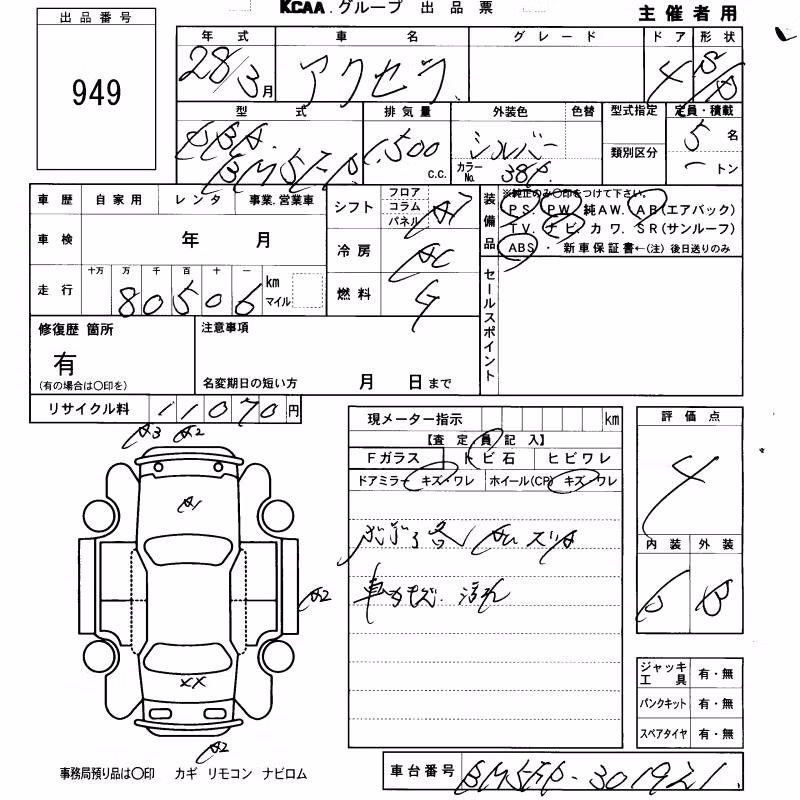 KCAA.グループ 出品票 主催者用
出品番号
949
年式 車名 グレード ドア 形状
28/3月 アクセラ 4
型式 排気量 外装色 色替 型式指定 定員・積載
DBA BM5FP 1,500 c.c. シルバー 5名
カラーNo. 38P 類別区分 トン
車歴 自家用 レンタ 事業.営業車
シフト フロア コラム パネル AT
車検 年 月
冷房 AC
走行 十万 万 千 百 十 一
80506 km マイル
燃料 G
装備品
※純正のみ○印をつけて下さい。
PS. PW. 純AW. AB(エアバック)
TV. ナビ. カワ. SR(サンルーフ)
ABS ・ 新車保証書←(注) 後日送りのみ
セールスポイント
修復歴 箇所
有
(有の場合は○印を)
注意事項
名変期日の短い方 月 日まで
リサイクル料 11070 円
A3 A2
A1
A2
XX
A2
現メーター指示 km
【査定員記入】
Fガラス トビ石 ヒビワレ
ドアミラー キズ・ワレ ホイール(CP) キズ・ワレ
車カキズ. 汚れ
評価点
4
内装 外装
B
ジャッキ工具 有・無
パンクキット 有・無
スペアタイヤ 有・無
事務局預り品は○印 カギ リモコン ナビロム
車台番号 BM5FP-301921